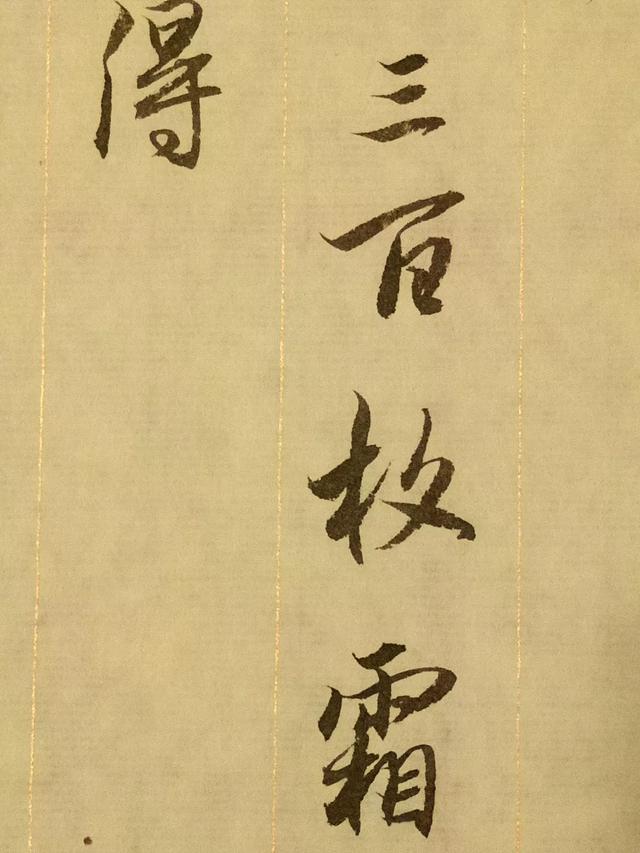 三百枚霜
得